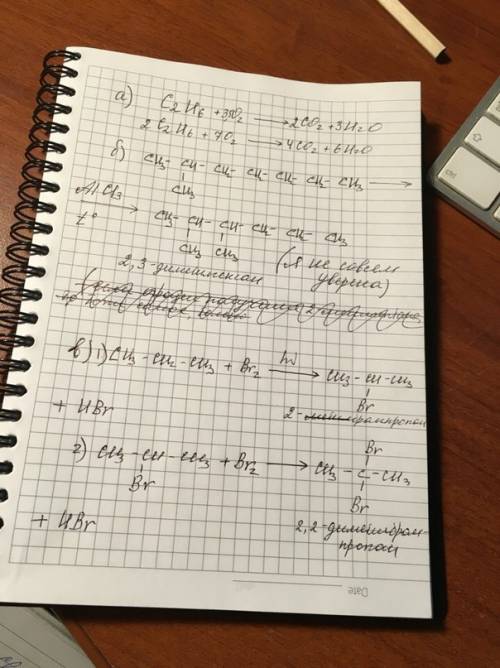 а) C2H6 + 3,5O2 → 2CO2 + 3H2O
2C2H6 + 7O2 → 4CO2 + 6H2O
б) CH3 - CH - CH2 - CH2 - CH2 - CH2 - CH3 →
CH3
AlCl3 → CH3 - CH - CH - CH2 - CH2 - CH3
t°
CH3 CH3
2,3-диметилгексан (Я не совсем уверена)
в) 1) CH3 - CH2 - CH3 + Br2 hν → CH3 - CH - CH3
Br
+ HBr 2-бромпропан
2) CH3 - CH - CH3 + Br2 → CH3 - C - CH3
Br
Br
Br
+ HBr
2,2-диметилбром-
пропан
Date